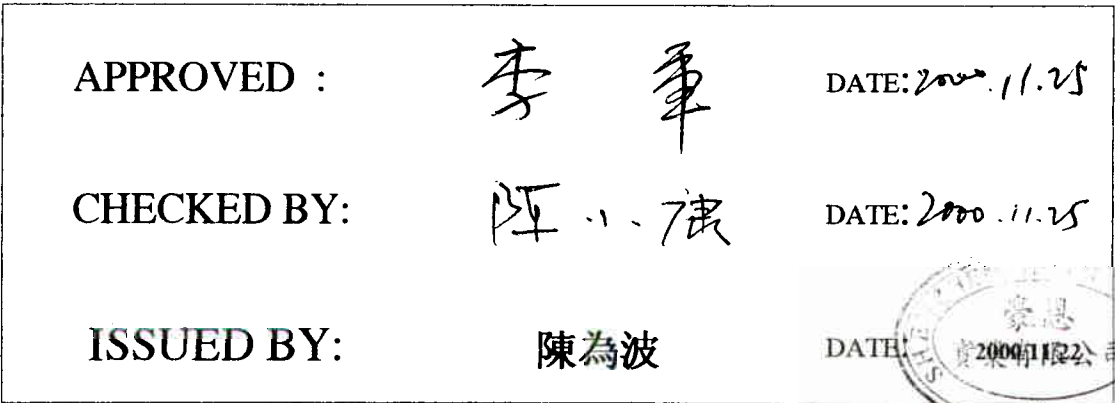 APPROVED : 李 軍 DATE: 2000.11.25
CHECKED BY: 陈小康 DATE: 2000.11.25
ISSUED BY: 陳為波 DATE: 2000/11/22
豪恩
實業有限公司